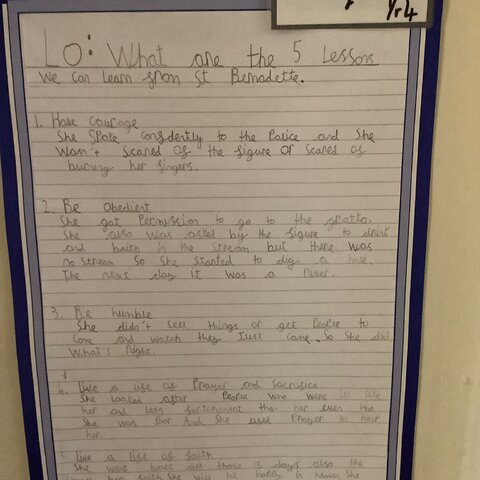 Yr4
LO: What are the 5 Lessons
We can Learn from St Bernadette.
1. Have courage
She spoke confidently to the Police and She
Wasn't scared of the figure or scared of
burning her fingers.
2. Be Obedient
She got Permission to go to the grotto.
She also was asked by the figure to drink
and baith in the stream but there was
no stream So She Started to dig a hole.
The next day it was a river.
3. Be humble
She didn't sell things or get People to
come and watch they Just came. So She did
What's right.
4. Live a life of Prayer and Sacrifice.
She looked after People who were ill like
her and less fortchonent than her even tho
She was Poor. And She used Prayer to help
her.
Live a life of faith
She went back all those 15 days also the
her faith She will be happy in heaven. She